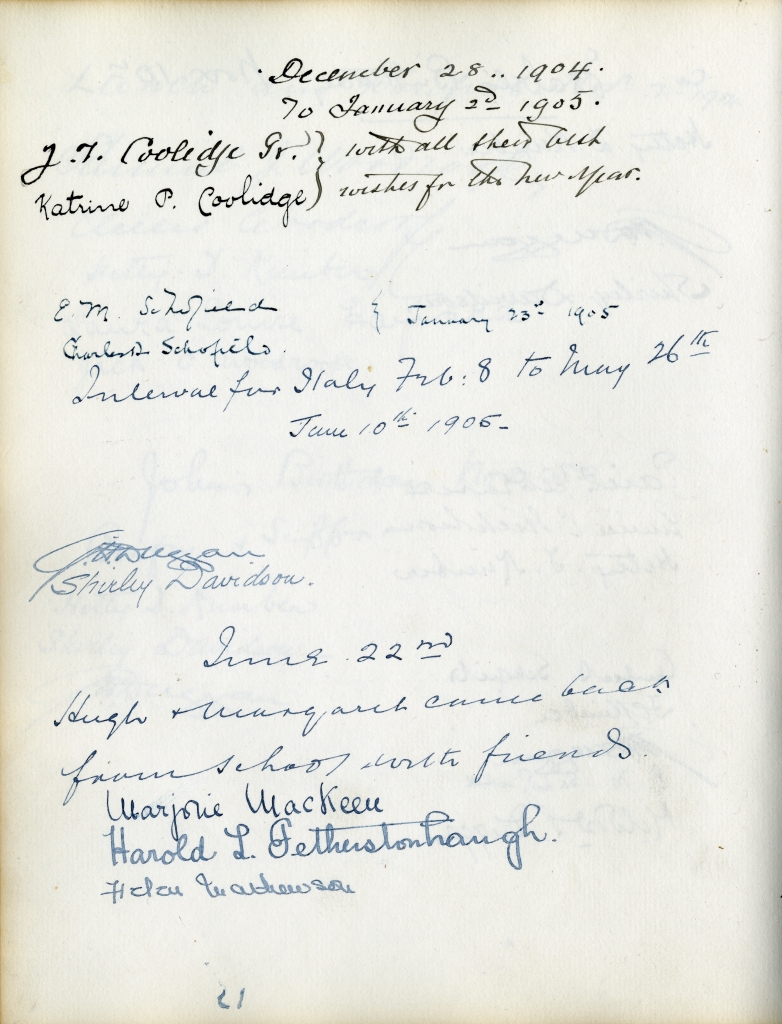 December 28.. 1904.
To January 2d 1905.
J. T. Coolidge Jr. } with all their best
Katrine P. Coolidge } wishes for the new year.
E. M. Schofield { January 23rd 1905
Charles D Schofield.
Interval for Italy Feb: 8 to May 26th
June 10th 1905-
Shirley Davidson.
June 22nd
Hugh & Margaret came back
from school with friends
Marjorie MacKeen
Harold L. Fetherstonhaugh.
Helen Mathewson
21